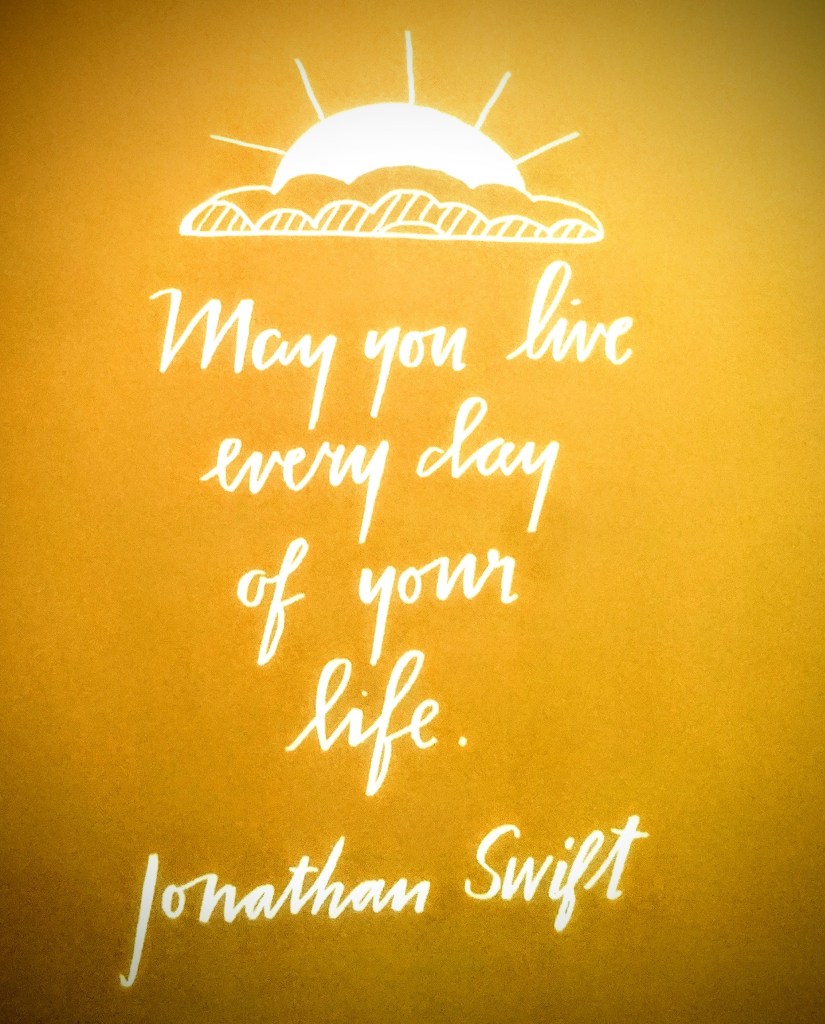 May you live
every day
of your
life.
Jonathan Swift